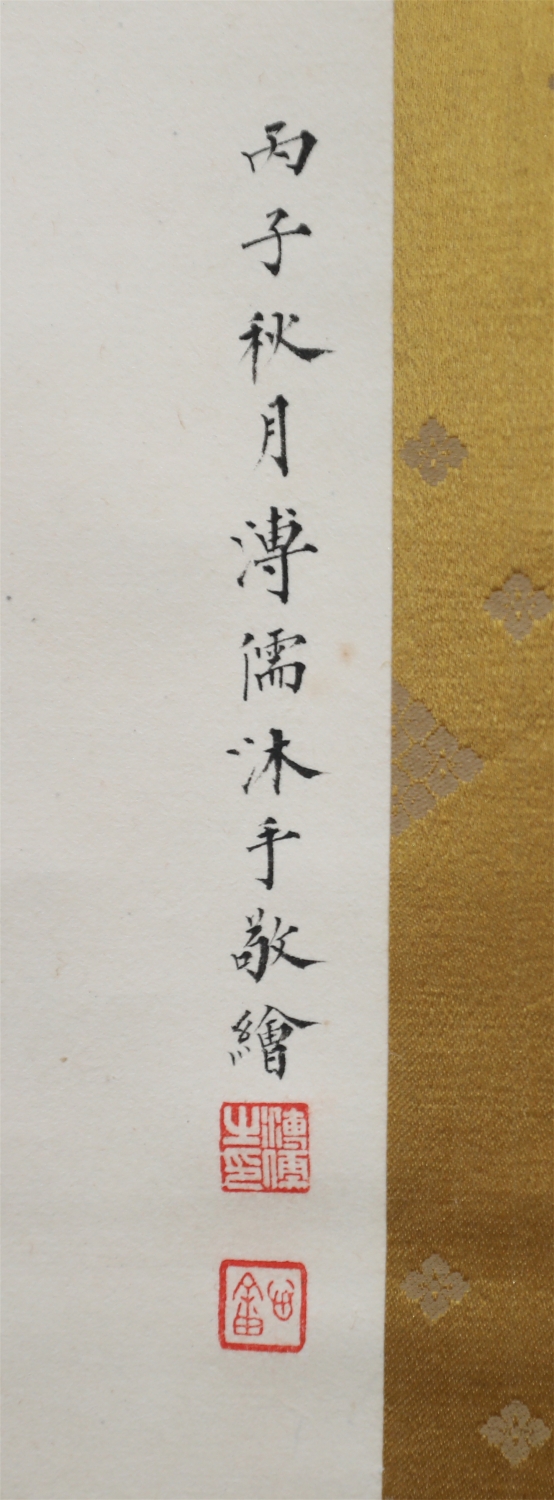 丙子秋月溥儒沐手敬繪
溥儒之印